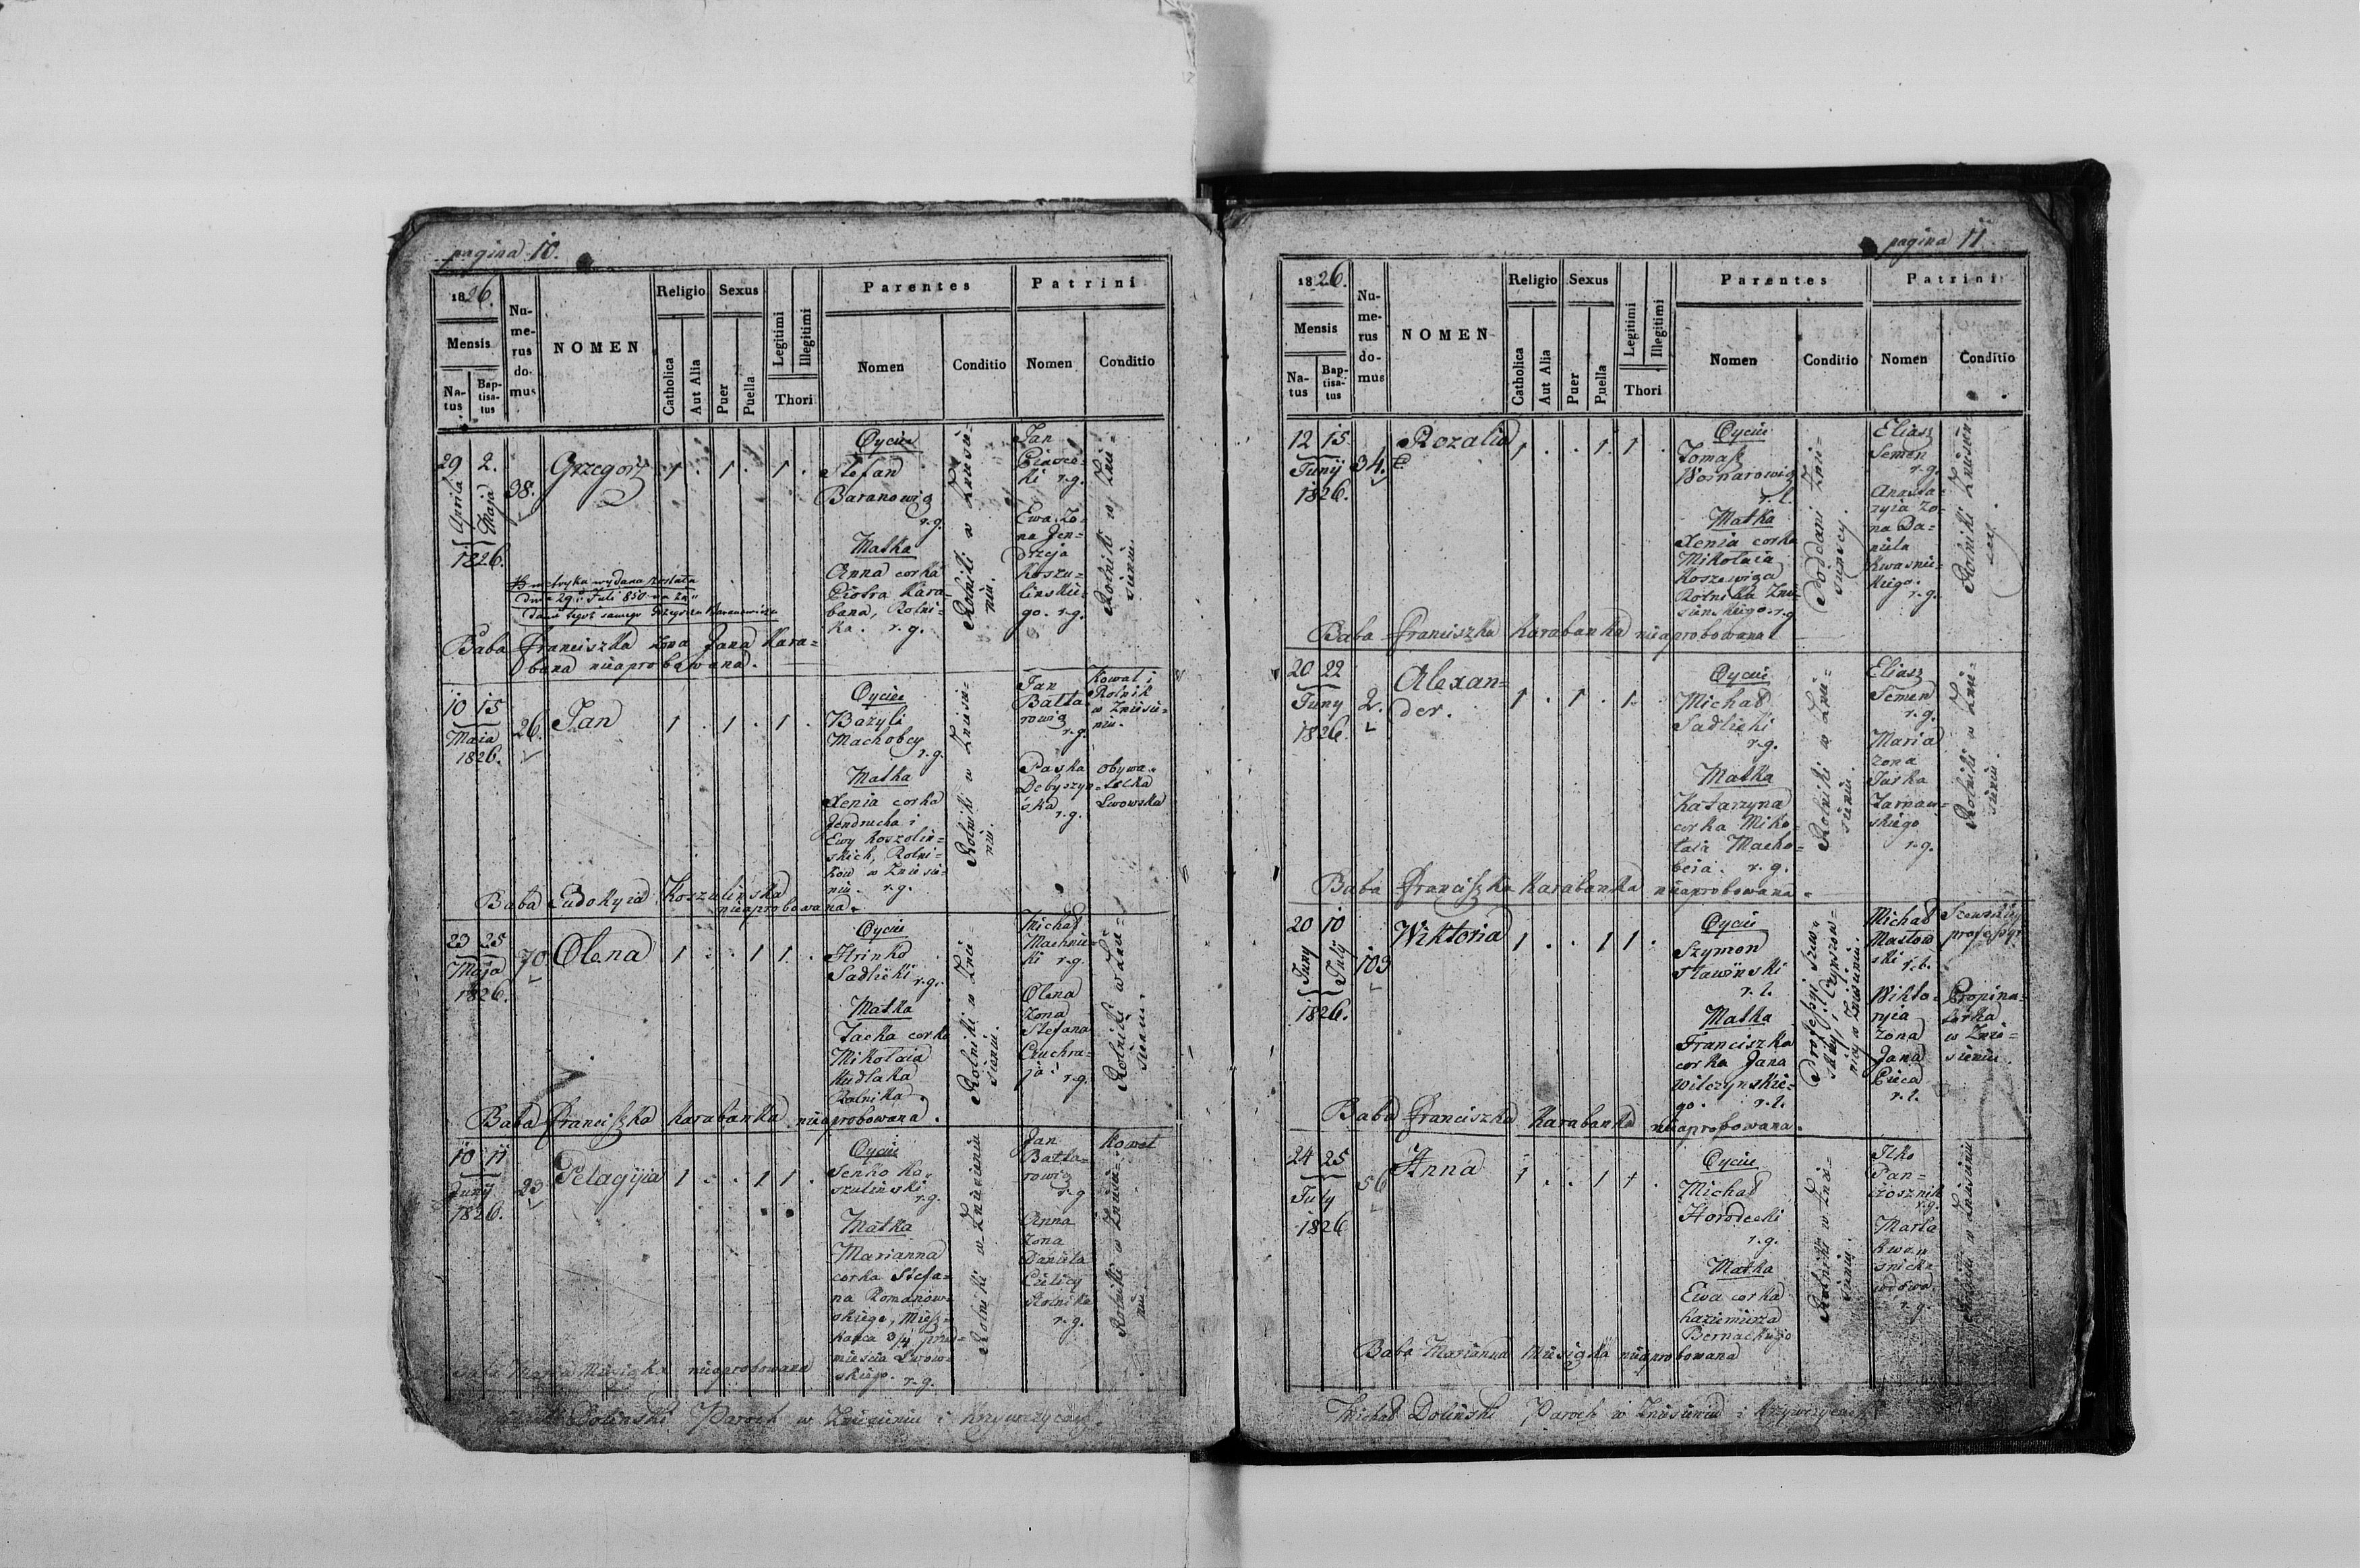 pagina 10.
1826.
Mensis
Na-
tus
Bap-
tisa-
tus
Nu-
me-
rus
do-
mus
NOMEN
Religio
Catholica
Aut Alia
Sexus
Puer
Puella
Legitimi
Illegitimi
Thori
Parentes
Nomen
Conditio
Patrini
Nomen
Conditio
29 2.
Aprila Maja
1826.
38.
Grzegorz
1 . 1 . 1 .
Oyciec
Stefan
Baranowicz
r.g.
Matka
Anna corka
Piotra Kara-
bana, Rolni-
ka. r.g.
Rolniki w Zniesie-
niu.
Jan
ki r.g.
Ewa Zo-
na Jen-
drzeja
Koszu-
linskie-
go. r.g.
Rolniki w Znie-
sieniu.
metryka wydana została
dnia 29. Juli 850
Baba Franciszka zona Jana Kara-
bana nieaprobowana.
10 15
Maja
1826.
26.
Jan
1 . 1 . 1 .
Oyciec
Bazyli
Machobey
r.g.
Matka
Xenia corka
Jendrucha i
Ewy Koszolin-
skich, Rolni-
kow w Zniesie-
niu. r.g.
Rolniki w Zniesie-
niu.
Jan
Balta-
rowicz
r.g.
Kowal i
Rolnik
w Zniesie-
niu.
Paska
Debyszyn-
ska
r.g.
obywa-
telka
Lwowska
Baba Eudokyia Koszulinska
nieaprobowana.
23 25
Maja
1826.
70
Olena
1 . . 1 1 .
Oyciec
Hrinko
Sadlicki
r.g.
Matka
Jacka corka
Mikolaia
Kudlaka
Rolnika.
Rolniki w Znie-
sieniu.
Michał
Machnic-
ki r.g.
Olena
zona
Stefana
r.g.
Rolniki w Znie-
sieniu.
Baba Franciszka Karabanka nieaprobowana.
10 11
Juny
1826.
23
Pelagija
1 . . 1 1 .
Oyciec
Senko Ko-
szulinski
r.g.
Matka
Marianna
corka Stefa-
na Romanow-
skiego, Miesz-
kańca 3/4 przed-
miescia Lwow-
skiego. r.g.
Rolniki w Zniesieniu
Jan
Balta-
rowicz
r.g.
Anna
zona
Daniela
Rolnika
r.g.
Kowal
Rolniki w Zniesie-
niu.
nieaprobowana
Dolinski Paroch w Zniesieniu i Krzywczycach.
pagina 11
1826.
Mensis
Na-
tus
Bap-
tisa-
tus
Nu-
me-
rus
do-
mus
NOMEN
Religio
Catholica
Aut Alia
Sexus
Puer
Puella
Legitimi
Illegitimi
Thori
Parentes
Nomen
Conditio
Patrini
Nomen
Conditio
12 15
Junij
1826.
34.
Rozalia
1 . . 1 1 .
Oyciec
Tomasz
Woinarowicz
r.l.
Matka
Xenia corka
Mikolaia
Koszewicza
Rolnika Znie-
sienskiego. r.g.
Poddani Znie-
sienscy.
Eliasz
Semen
r.g.
Anasta-
zyia Zo-
na Da-
niela
Kwasnic-
kiego.
r.g.
Rolniki Zniesien-
scy.
Baba Franciszka Karabanka nieaprobowana
20 22
Juny
1826.
2.
Alexan-
der.
1 . 1 . 1 .
Oyciec
Michał
Sadlicki
r.g.
Matka
Katarzyna
corka Miko-
łaia Macho-
beia. r.g.
Rolniki w Znie-
sieniu.
Eliasz
Semen
r.g.
Maria
zona
Jaska
Tarnaw-
skiego
r.g.
Rolniki w Znie-
sieniu.
Baba Franciszka Karabanka nieaprobowana.
20 10
Juny July
1826.
103
Wiktoria
1 . . 1 1 .
Oyciec
Szymon
Sławinski
r.l.
Matka
Franciszka
corka Jana
Wilczynskie-
go. r.l.
Professyi Szew-
skiey, Czynszow-
nicy w Zniesieniu.
Michał
Masłow-
ski r.l.
Szewskiey
professyi
Wikto-
ryia
zona
Jana
Pieca
r.l.
Propina-
torka
w Znie-
sieniu.
Baba Franciszka Karabanka nieaprobowana.
24 25
July
1826
56
Anna
1 . . 1 1 .
Oyciec
Michał
Horodecki
r.g.
Matka
Ewa corka
Kazimierza
Bernackiego
Rolniki w Znie-
sieniu.
Ilko
Pan-
czosznik
r.g.
Marta
Kwa-
snicka
wdowa
r.g.
Rolniki w Zniesieniu
Baba Marianna Misiacka nieaprobowana
Michał Doliński Paroch w Zniesieniu i Krzywczycach